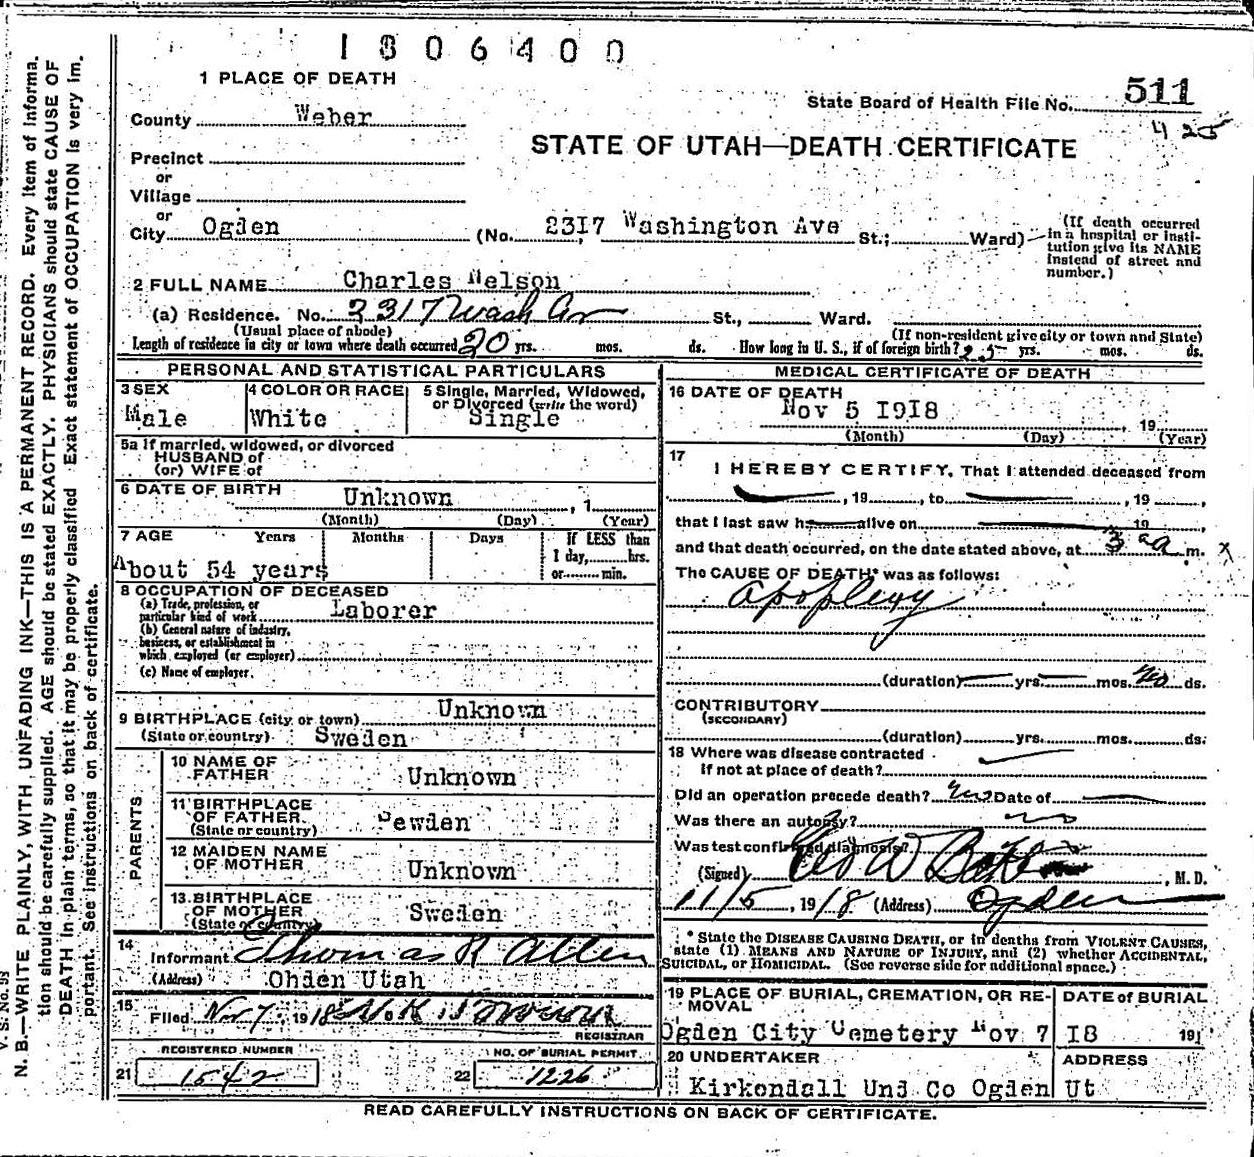 1806400
1 PLACE OF DEATH
State Board of Health File No. 511
County Weber
425
STATE OF UTAH—DEATH CERTIFICATE
Precinct
or
Village
or
City Ogden (No. 2317, Washington Ave St.; Ward)
(If death occurred
in a hospital or insti-
tution give its NAME
instead of street and
number.)
2 FULL NAME Charles Nelson
(a) Residence. No. 2317 Wash Av St., Ward.
(Usual place of abode) (If non-resident give city or town and State)
Length of residence in city or town where death occurred 20 yrs. mos. ds. How long in U. S., if of foreign birth? 25 yrs. mos. ds.
PERSONAL AND STATISTICAL PARTICULARS
3 SEX
Male
4 COLOR OR RACE
White
5 Single, Married, Widowed,
or Divorced (write the word)
Single
5a If married, widowed, or divorced
HUSBAND of
(or) WIFE of
6 DATE OF BIRTH Unknown, 1
(Month) (Day) (Year)
7 AGE Years Months Days If LESS than
1 day, hrs.
or min.
About 54 years
8 OCCUPATION OF DECEASED
(a) Trade, profession, or
particular kind of work Laborer
(b) General nature of industry,
business, or establishment in
which employed (or employer)
(c) Name of employer.
9 BIRTHPLACE (city or town) Unknown
(State or country) Sweden
PARENTS
10 NAME OF
FATHER Unknown
11 BIRTHPLACE
OF FATHER
(State or country) Sewden
12 MAIDEN NAME
OF MOTHER Unknown
13 BIRTHPLACE
OF MOTHER
(State or country) Sweden
14
Informant Thomas R Allen
(Address) Ohden Utah
15
Filed Nov 7, 1918
REGISTRAR
REGISTERED NUMBER
21 1542
NO. OF BURIAL PERMIT
22 1226
MEDICAL CERTIFICATE OF DEATH
16 DATE OF DEATH
Nov 5 I9I8, 19
(Month) (Day) (Year)
17
I HEREBY CERTIFY, That I attended deceased from
, 19 , to , 19 ,
that I last saw h alive on 19 ,
and that death occurred, on the date stated above, at 3 a m. x
The CAUSE OF DEATH* was as follows:
Apoplexy
(duration) yrs. mos. ds.
CONTRIBUTORY
(SECONDARY)
(duration) yrs. mos. ds.
18 Where was disease contracted
if not at place of death?
Did an operation precede death? no Date of
Was there an autopsy? no
Was test confirmed diagnosis?
(Signed) Geo W , M. D.
11/5, 1918 (Address) Ogden
* State the DISEASE CAUSING DEATH, or in deaths from VIOLENT CAUSES,
state (1) MEANS AND NATURE OF INJURY, and (2) whether ACCIDENTAL,
SUICIDAL, or HOMICIDAL. (See reverse side for additional space.)
19 PLACE OF BURIAL, CREMATION, OR RE-
MOVAL
DATE of BURIAL
Ogden City Cemetery Nov 7 I8 191
20 UNDERTAKER ADDRESS
Kirkendall Und Co Ogden Ut
READ CAREFULLY INSTRUCTIONS ON BACK OF CERTIFICATE.
V. S. No. 95
N. B.—WRITE PLAINLY, WITH UNFADING INK—THIS IS A PERMANENT RECORD. Every item of informa-
tion should be carefully supplied. AGE should be stated EXACTLY. PHYSICIANS should state CAUSE OF
DEATH in plain terms, so that it may be properly classified. Exact statement of OCCUPATION is very im-
portant. See instructions on back of certificate.